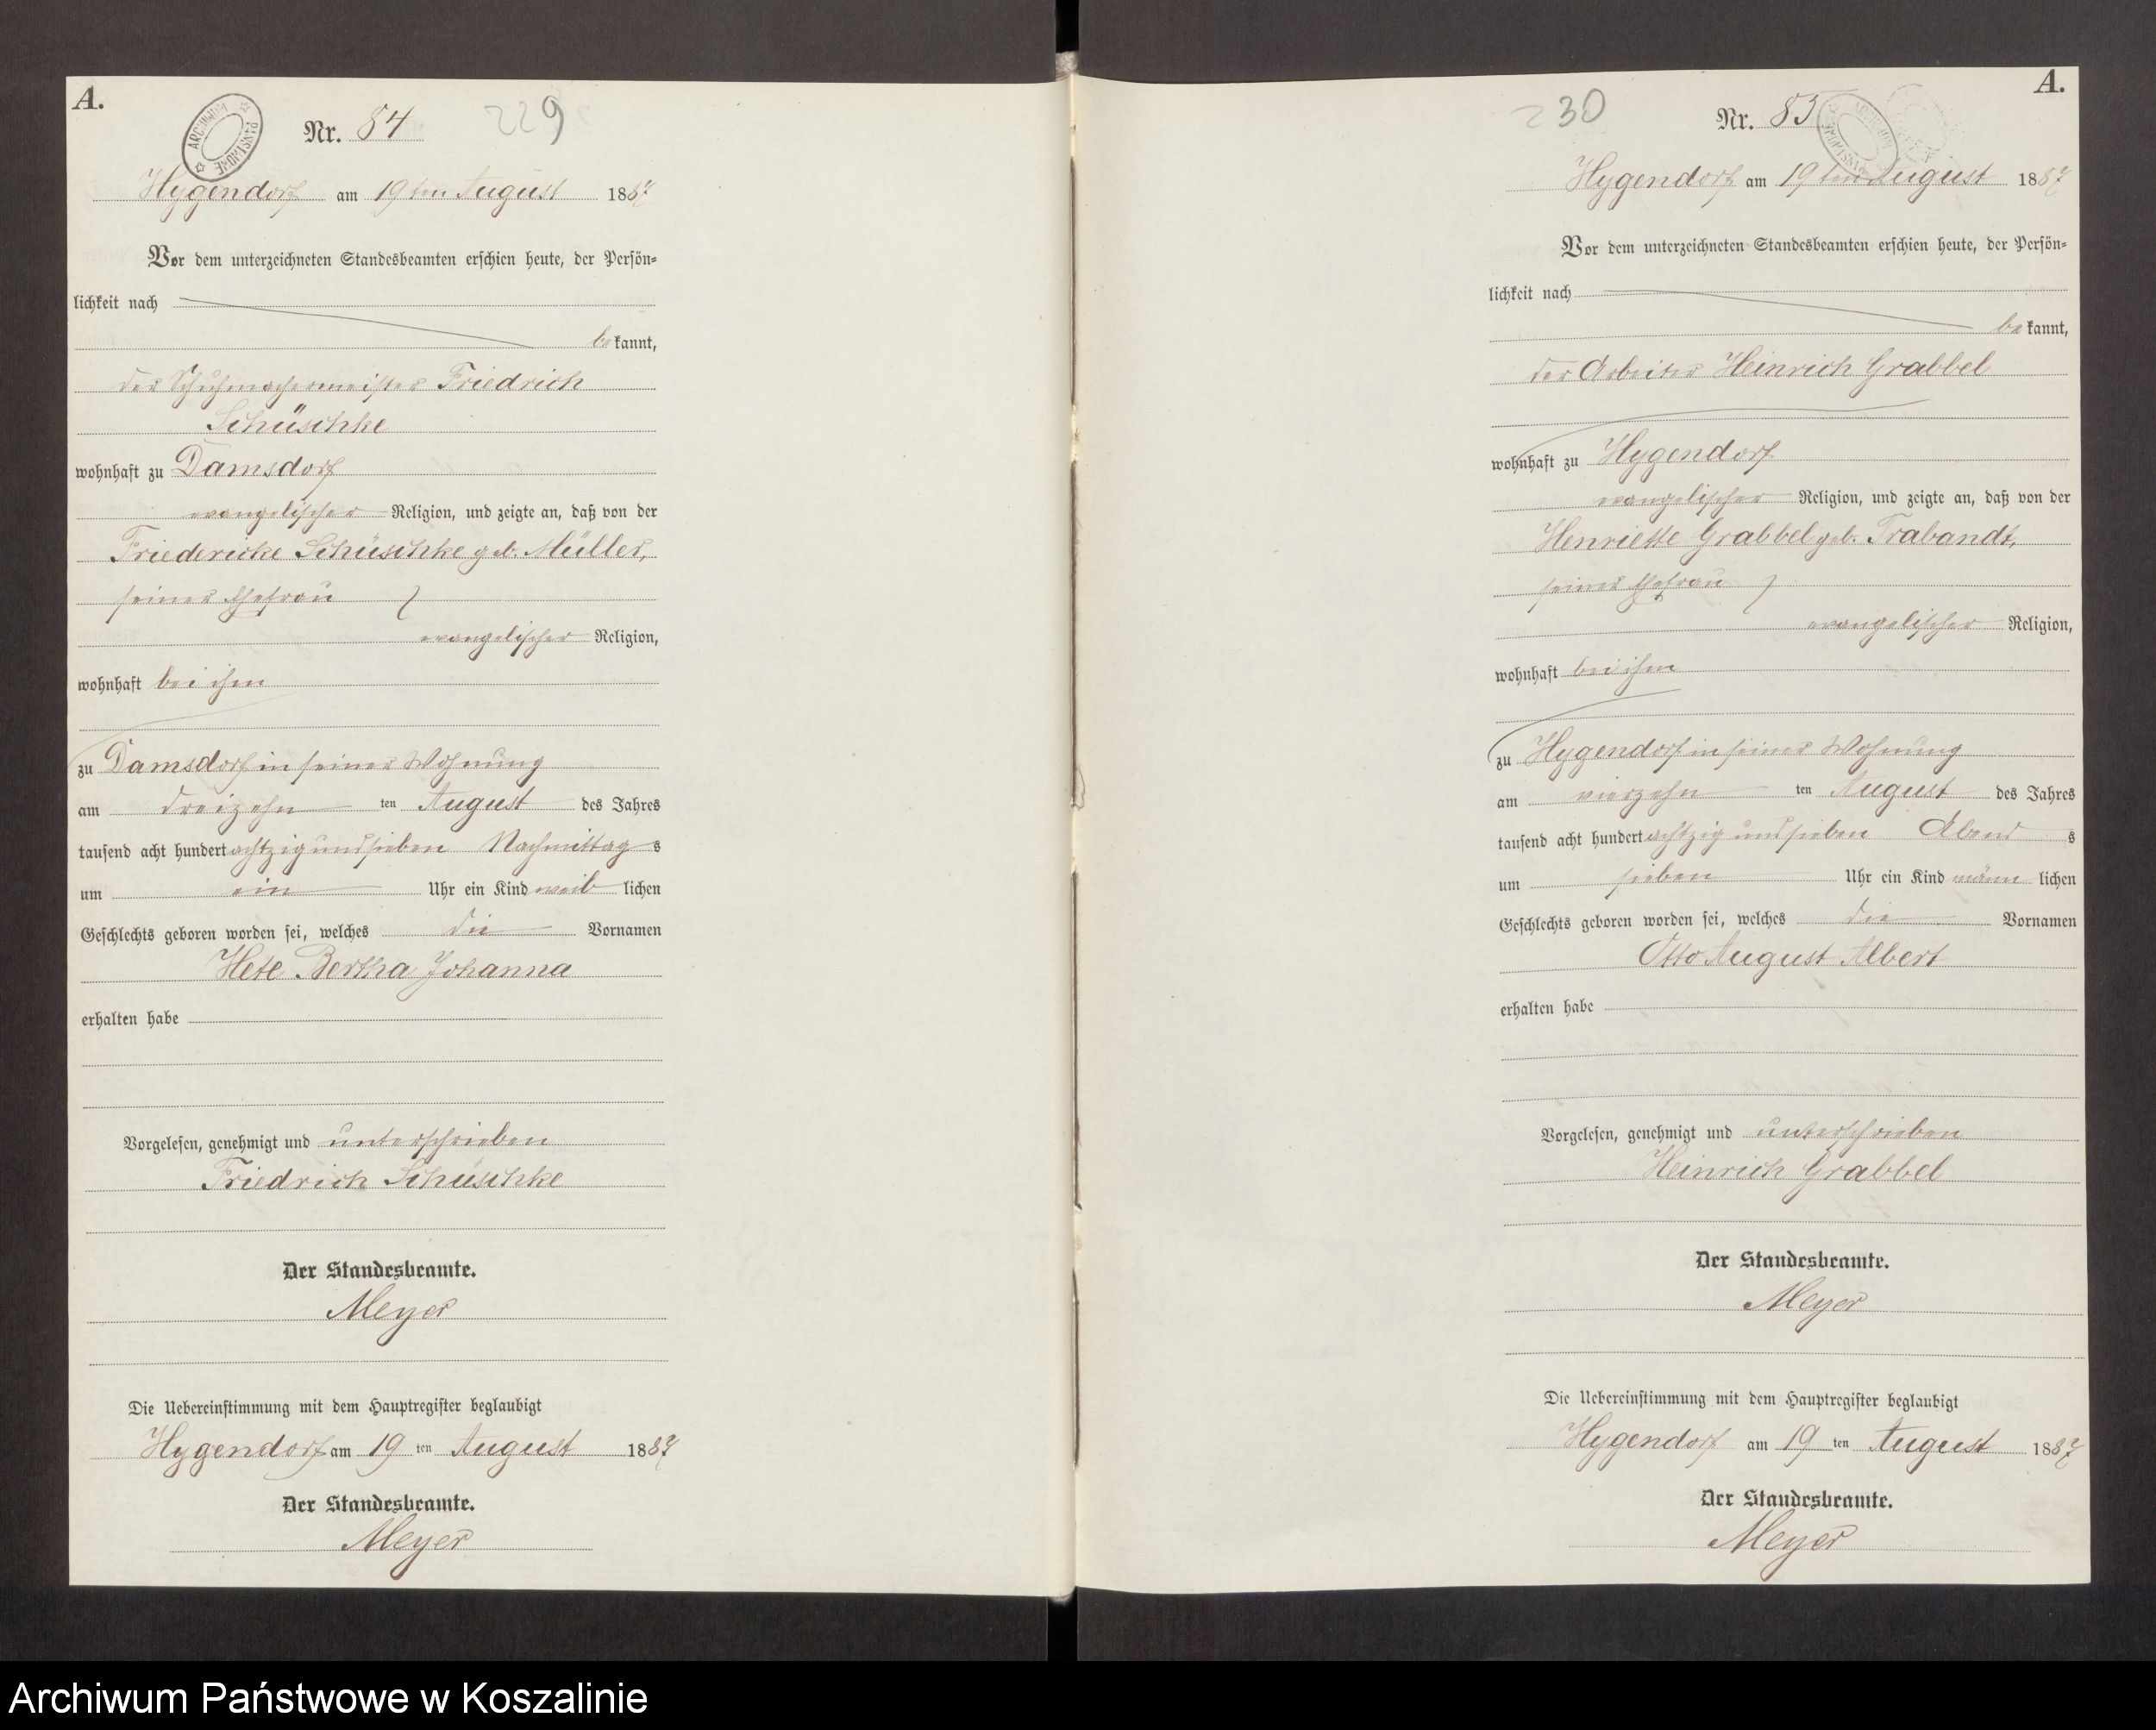 A.
ARCHIWUM PAŃSTWOWE
Nr. 84
229
Hygendorf am 19ten August 1887
Vor dem unterzeichneten Standesbeamten erschien heute, der Persön=
lichkeit nach
bekannt,
der Schuhmachermeister Friedrich
Schüschke
wohnhaft zu Damsdorf
evangelischer Religion, und zeigte an, daß von der
Friedericke Schüschke geb. Müller,
seiner Ehefrau
evangelischer Religion,
wohnhaft bei ihm
zu Damsdorf in seiner Wohnung
am dreizehn ten August des Jahres
tausend acht hundert achtzig und sieben Nachmittags
um ein Uhr ein Kind weiblichen
Geschlechts geboren worden sei, welches die Vornamen
Hete Bertha Johanna
erhalten habe
Vorgelesen, genehmigt und unterschrieben
Friedrich Schüschke
Der Standesbeamte.
Meyer
Die Uebereinstimmung mit dem Hauptregister beglaubigt
Hygendorf am 19 ten August 1887
Der Standesbeamte.
Meyer
A.
230
Nr. 85
ARCHIWUM PAŃSTWOWE
Hygendorf am 19ten August 1887
Vor dem unterzeichneten Standesbeamten erschien heute, der Persön=
lichkeit nach
bekannt,
der Arbeiter Heinrich Grabbel
wohnhaft zu Hygendorf
evangelischer Religion, und zeigte an, daß von der
Henriette Grabbel geb. Trabandt,
seiner Ehefrau
evangelischer Religion,
wohnhaft bei ihm
zu Hygendorf in seiner Wohnung
am vierzehn ten August des Jahres
tausend acht hundert achtzig und sieben Abends
um sieben Uhr ein Kind männlichen
Geschlechts geboren worden sei, welches die Vornamen
Otto August Albert
erhalten habe
Vorgelesen, genehmigt und unterschrieben
Heinrich Grabbel
Der Standesbeamte.
Meyer
Die Uebereinstimmung mit dem Hauptregister beglaubigt
Hygendorf am 19 ten August 1887
Der Standesbeamte.
Meyer
Archiwum Państwowe w Koszalinie